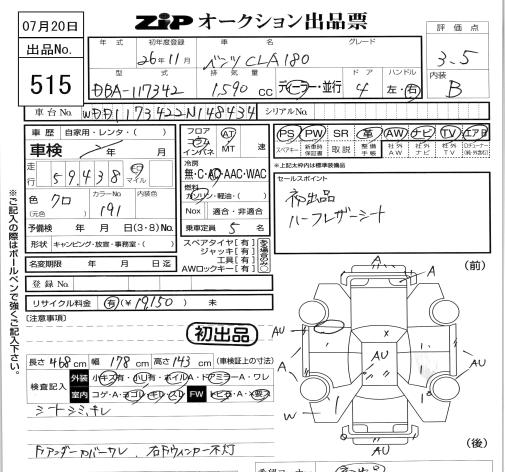 07月20日
ZiP オークション出品票
出品No.
515
評価点
3.5
内装
B
年式 初年度登録 車名 グレード
26年11月 ベンツ CLA180
型式 排気量 ドア ハンドル
DBA-117342 1,590 cc 元・ミラー・並行 4 左・右
車台No. WDD1173422N148434 シリアルNo.
車歴 自家用・レンタ・( )
車検 年 月
走行 59,438 Km マイル
色 クロ (元色) カラーNo 191 内装色
予備検 年 月 日(3・8)No.
形状 キャンピング・放宣・事務室・( )
名変期限 年 月 日迄
登録No.
リサイクル料金 有(¥ 19,150) 未
フロア コラム インパネ AT MT 速
冷房 無・C・AC・AAC・WAC
燃料 ガソリン・軽油・( )
Nox 適合・非適合
乗車定員 5 名
スペアタイヤ[有]
ジャッキ[有]
工具[有]
AWロックキー[有]
PS PW SR 革 AW ナビ TV エアB
スペアキー 新車時保証書 取説 整備手帳 社外AW 社外ナビ 社外TV
※上記太枠内は標準装備品
セールスポイント
初出品
ハーフレザーシート
[注意事項]
初出品
長さ 468 cm 幅 178 cm 高さ 143 cm (車検証上の寸法)
検査記入 外装 小キズ有・小U有・ホイルA・ドアミラーA・ワレ
室内 コゲ・A・ヨゴレ・キレ・スレ FW トビ石・A・×要ス
シートシミ、キレ
Fアンダーカバーワレ、右Fウィンカー不灯
(前)
A
A
AU
AU
X
A
AU
A
W
AU
AU
(後)
初出品
※ご記入の際はボールペンで強くご記入下さい。